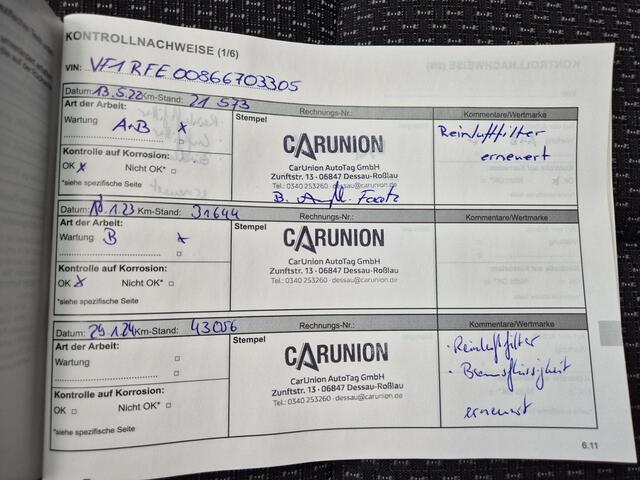 KONTROLLNACHWEISE (1/6)
VIN: VF1RFE00866703305
Datum: 13.5.22 Km-Stand: 21 573 Rechnungs-Nr.: Kommentare/Wertmarke
Art der Arbeit:
Wartung A+B x
Kontrolle auf Korrosion:
OK x Nicht OK*
*siehe spezifische Seite
Stempel
CARUNION
CarUnion AutoTag GmbH
Zunftstr. 13 · 06847 Dessau-Roßlau
Tel.: 0340 253260 · dessau@carunion.de
Reinluftfilter
erneuert
Datum: 10.1.23 Km-Stand: 31644 Rechnungs-Nr.: Kommentare/Wertmarke
Art der Arbeit:
Wartung B x
Kontrolle auf Korrosion:
OK x Nicht OK*
*siehe spezifische Seite
Stempel
CARUNION
CarUnion AutoTag GmbH
Zunftstr. 13 · 06847 Dessau-Roßlau
Tel.: 0340 253260 · dessau@carunion.de
Datum: 29.1.24 Km-Stand: 43056 Rechnungs-Nr.: Kommentare/Wertmarke
Art der Arbeit:
Wartung
Kontrolle auf Korrosion:
OK Nicht OK*
*siehe spezifische Seite
Stempel
CARUNION
CarUnion AutoTag GmbH
Zunftstr. 13 · 06847 Dessau-Roßlau
Tel.: 0340 253260 · dessau@carunion.de
· Reinluftfilter
· Bremsflüssigkeit
erneuert
6.11